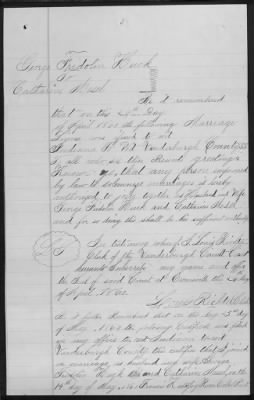 George Fridolin Huck
To
Catharine Hesel
Be it remembered
that on the Day
of April 1862 the following Marriage
License was to wit
Indiana To Wit Vanderburgh County SS
To all who see this Present greeting
Know ye, that any person empowered
by law to solemnize marriages is hereby
authorized to together as Husband and Wife
George Fridolin Huck and Catharine Hesel
and for so doing this shall be his sufficient authority
In testimony whereof I
Clerk of the Vanderburgh Circuit Court
hereunto Subscribe my name and affix
the Seal of said Court at Evansville this Day
of April 1862.
Clerk
Be it further Remembered that on this day
of May 1862 the following Certificate was filed
in my office to wit Indiana to wit
Vanderburgh County This certifies that I joined
in marriage as husband and wife George
Fridolin Huck and Catharine Hesel on the
of May